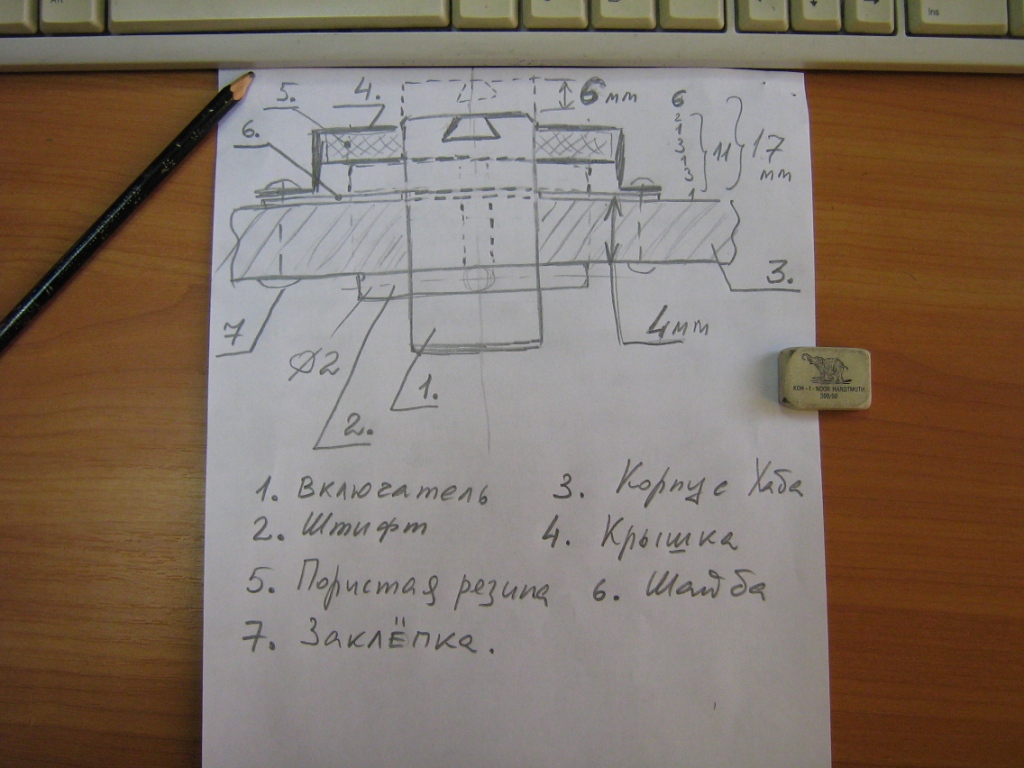 Alt
Ins
5.
4.
6 мм
6
2
1
3
1
3
1
11
17
мм
6.
3.
7
ø2
4 мм
1.
2.
KOH-I-NOOR HARDTMUTH
300/60
1. Включатель
3. Корпус Хаба
2. Штифт
4. Крышка
5. Пористая резина
6. Шайба
7. Заклёпка.